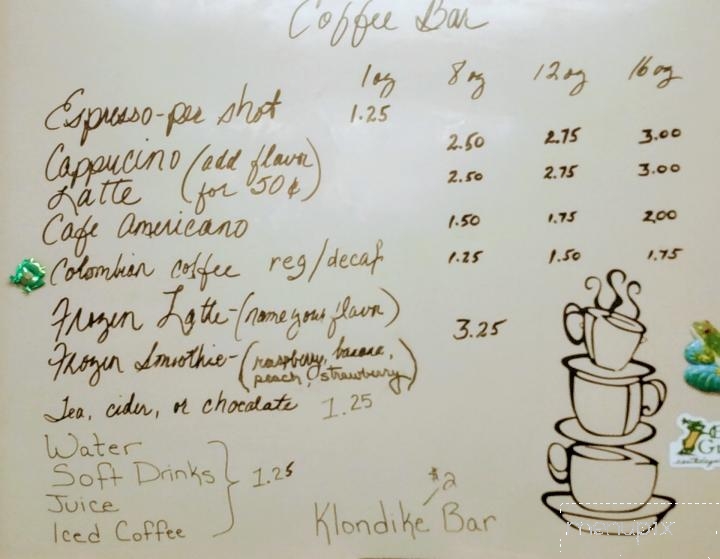 Coffee Bar
1oz 8oz 12oz 16oz
Espresso-per shot 1.25
Cappucino (add flavor 2.50 2.75 3.00
Latte for 50¢) 2.50 2.75 3.00
Cafe Americano 1.50 1.75 2.00
Colombian coffee reg/decaf 1.25 1.50 1.75
Frozen Latte-(name your flavor) 3.25
Frozen Smoothie-(raspberry, banana,
peach, strawberry)
Tea, cider, or chocolate 1.25
Water
Soft Drinks 1.25
Juice
Iced Coffee
$2
Klondike Bar
menupix